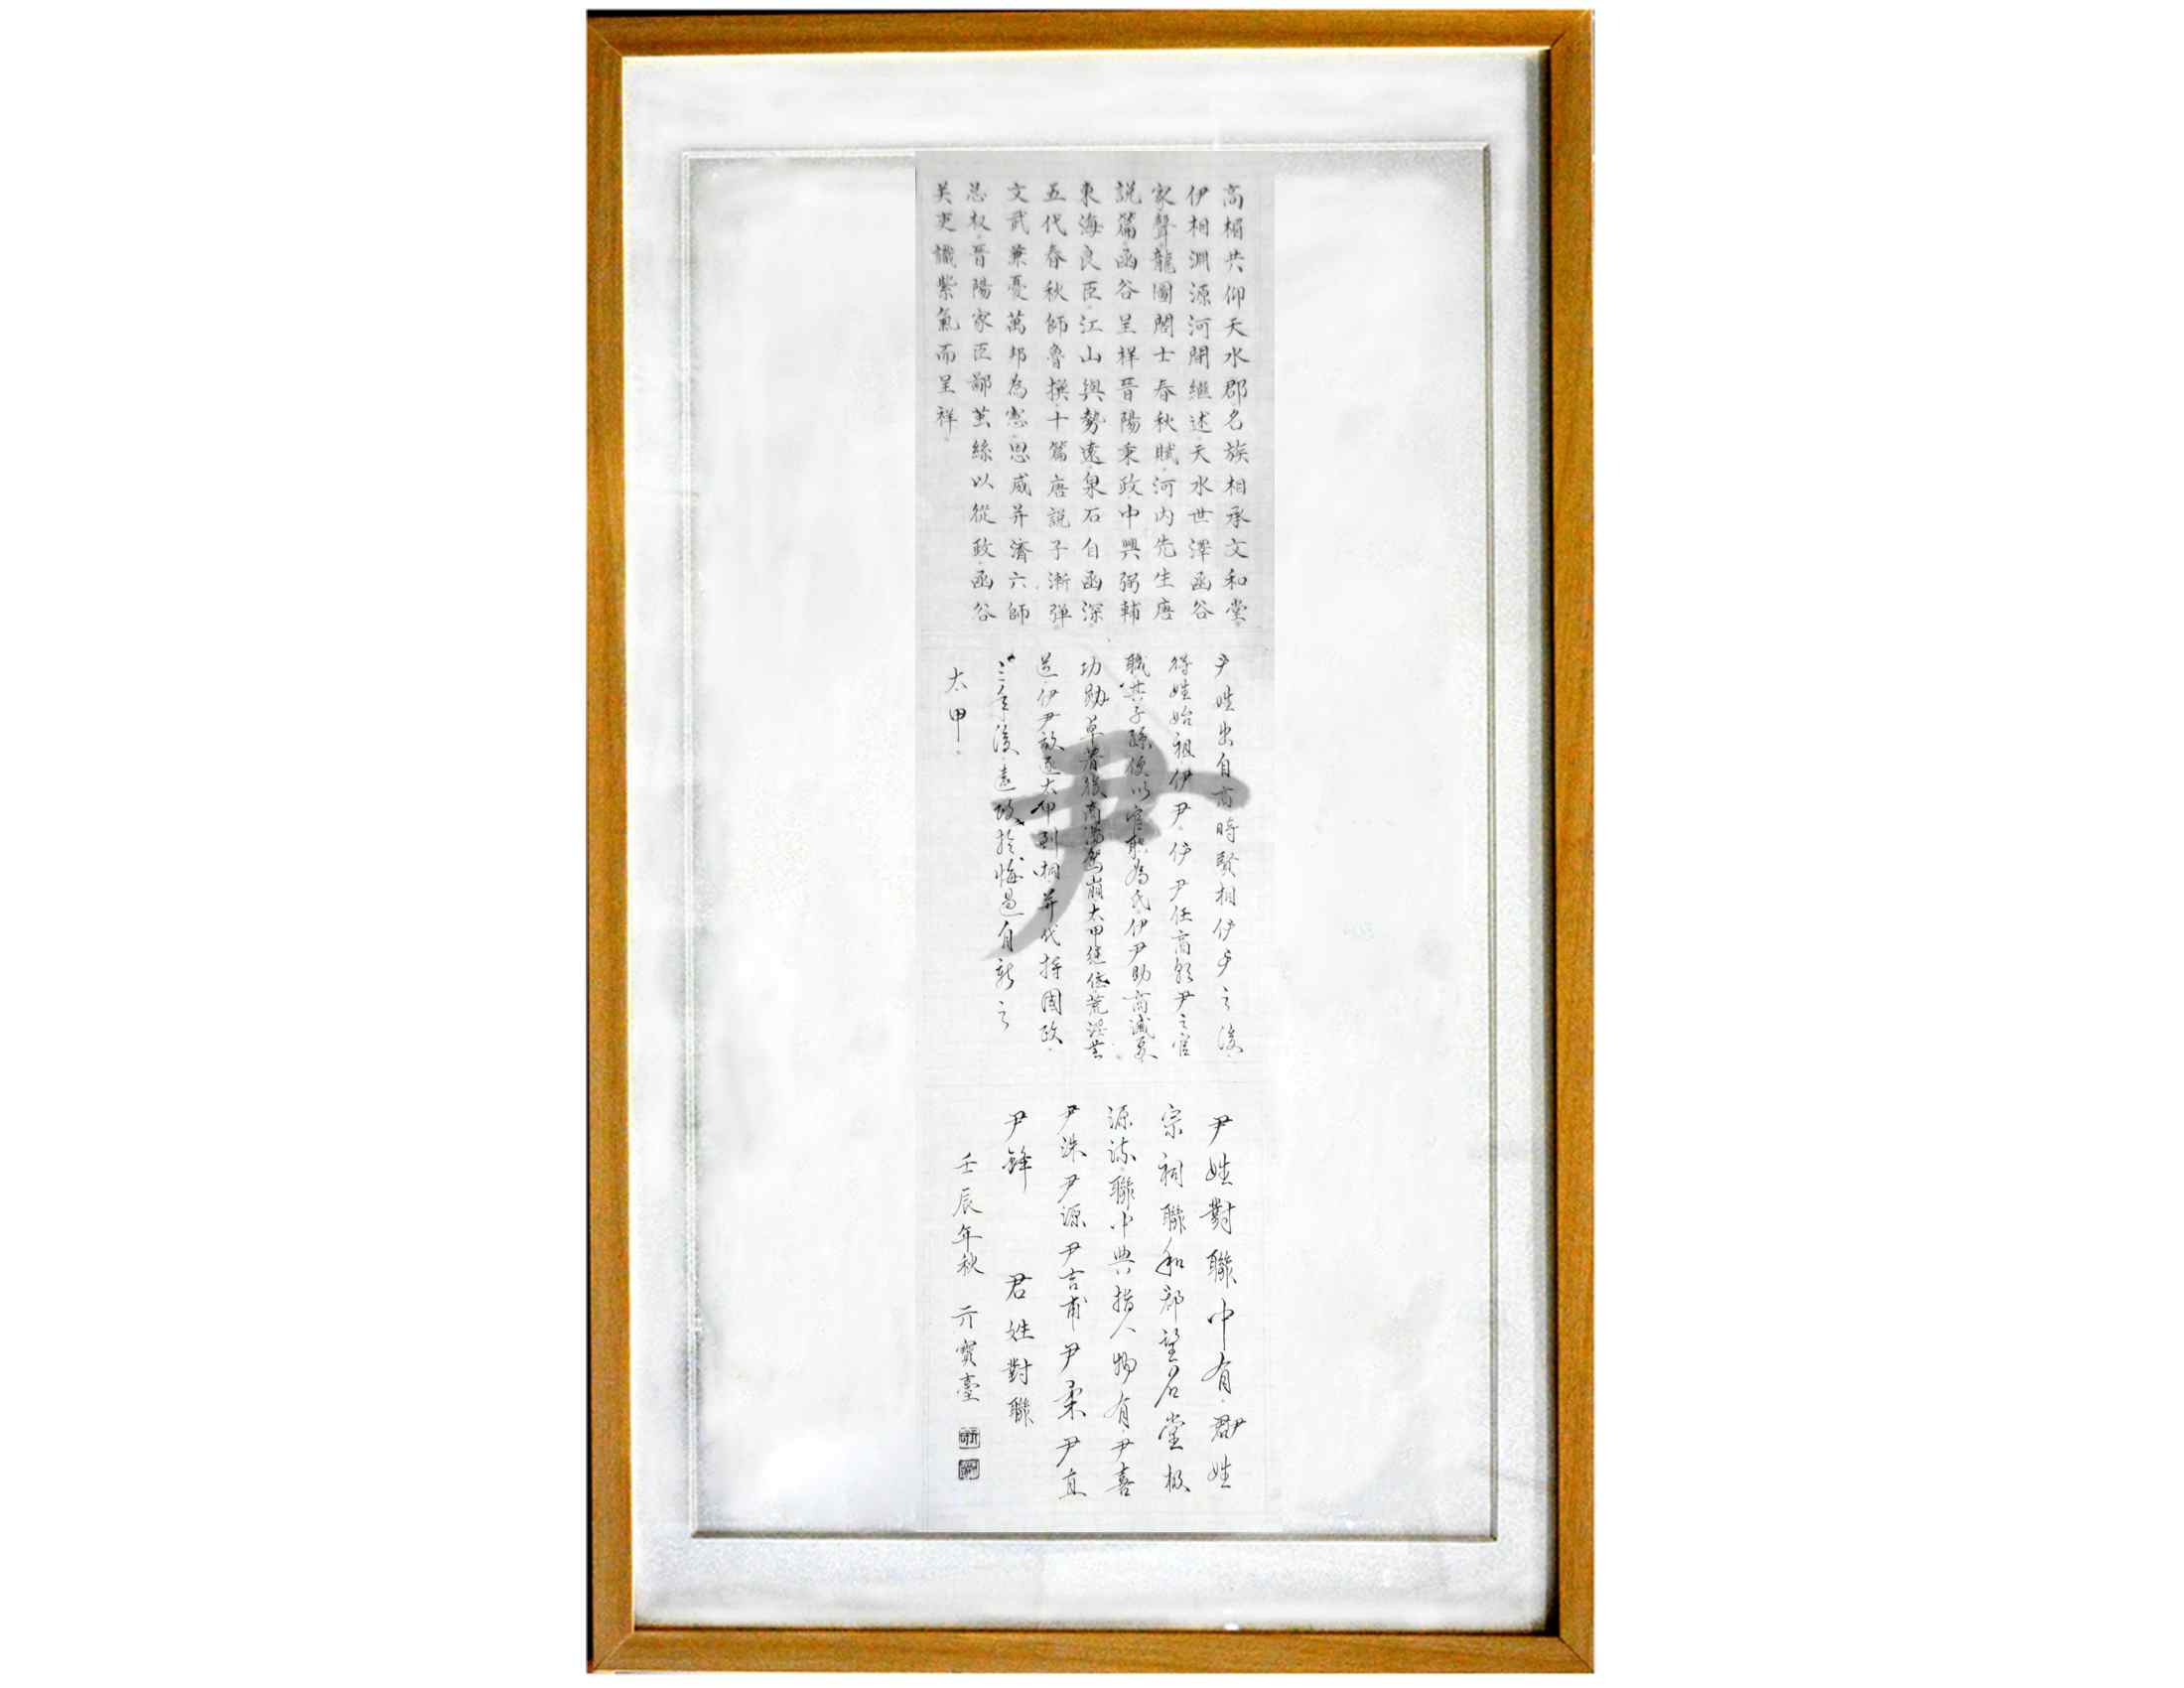 高楣共仰天水郡名族相承文和堂。
伊相淵源河開繼述天水世澤函谷
家聲龍圖閣士春秋賦河内先生唐
說篇函谷呈祥晉陽秉政中興弼輔
東海良臣江山與勢遠泉石自函深
五代春秋師魯撰十篇唐說子漸彈
文武兼憂萬邦為憲恩威并濟六師
忌权晉陽家臣鄙茧絲以從政函谷
关吏識紫氣而呈祥。
尹姓出自商時賢相伊尹之後
得姓始祖伊尹伊尹任商朝尹之官
職其子孫便以官職為氏伊尹助商滅夏
功勛卓著後商湯駕崩太甲繼位荒淫無
道伊尹放逐太甲到桐并代持國政
三年後還政於悔過自新之
太甲。
尹姓對聯中有尹姓
宗祠聯和郡望名堂極
源流聯中典指人物有尹喜
尹洙尹源尹吉甫尹柔尹直
尹鋒 君姓對聯
壬辰年秋 亓寶臺
尹